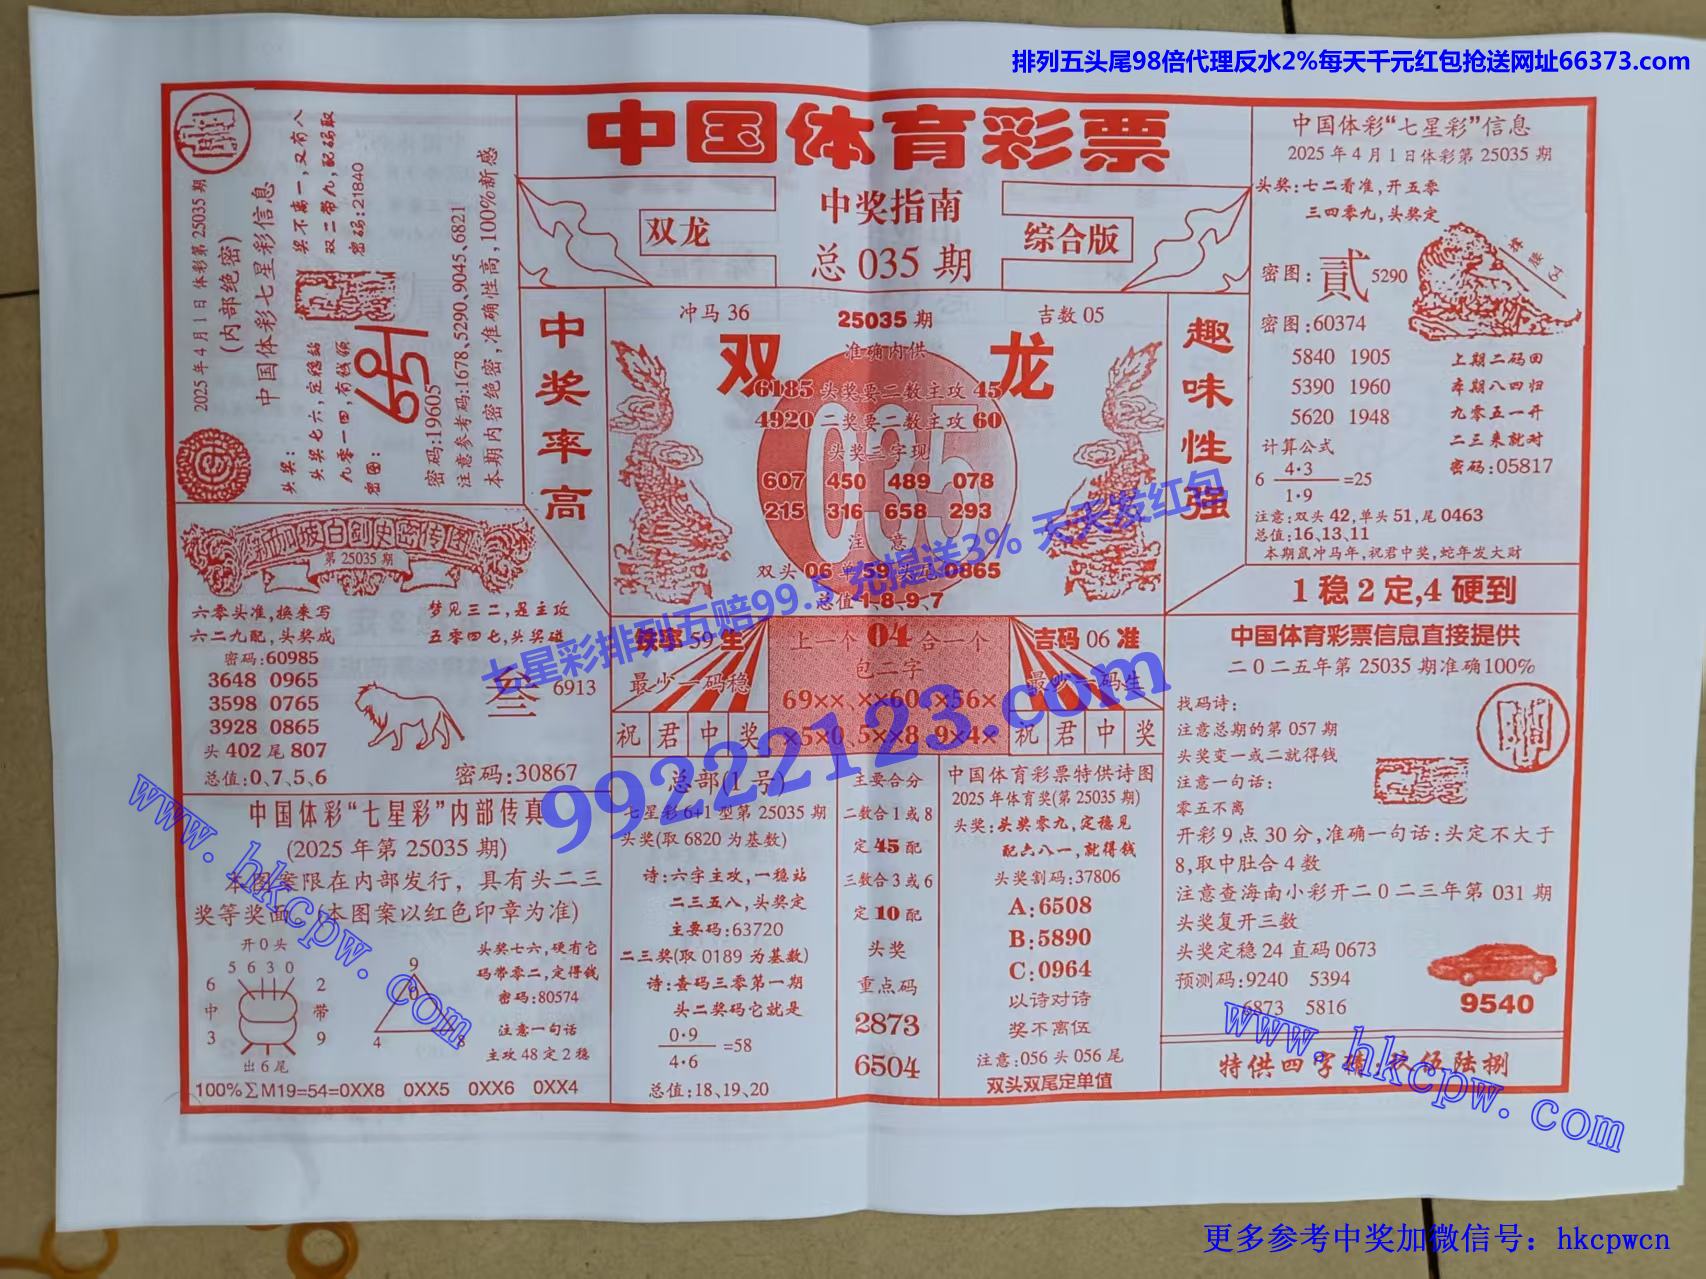 排列五头尾98倍代理反水2%每天千元红包抢送网址66373.com
中国体育彩票
中奖指南
总 035 期
双龙
综合版
2025年4月1日 体彩第25035期
(内部绝密)
中国体彩七星彩信息
奖不离一,又有八
双二带九,配码取
密码:21840
头奖:
头奖七六,定稳站
九零一四,有钱领
密图:
密码:19605
注意参考码:1678、5290、9045、6821
本期内密绝密,准确性高,100%新感
中奖率高
冲马 36
25035 期
吉数 05
双
龙
准确内供
6185 头奖要二数主攻 45
4920 二奖要二数主攻 60
头奖三字现
607 450 489 078
215 316 658 293
035
注 意
双头 06 单 59 头尾 0865
总值 1、8、9、7
趣味性强
中国体彩“七星彩”信息
2025年4月1日体彩第25035期
头奖:七二看准,开五零
三四零九,头奖定
密图: 貳 5290
密图:60374
5840 1905
5390 1960
5620 1948
上期二码回
本期八四归
九零五一开
二三来就对
密码:05817
计算公式
6 4·3/1·9 =25
注意:双头42,单头51,尾0463
总值:16、13、11
本期鼠冲马年,祝君中奖,蛇年发大财
1稳2定,4硬到
新加坡白剑史密传图
第 25035 期
六零头准,换来写
六二九配,头奖成
梦见三二,是主攻
五零四七,头奖磁
密码:60985
3648 0965
3598 0765
3928 0865
头 402 尾 807
总值:0、7、5、6
叁 6913
密码:30867
铁率 59 生
最少一码稳
上一个 04 合一个
包二字
69××、××60、×56×
×5×0、5××8、9×4×
吉码 06 准
最少一码生
祝君中奖
祝君中奖
中国体育彩票信息直接提供
二0二五年第25035期准确100%
找码诗:
注意总期的第057期
头奖变一或二就得钱
注意一句话:
零五不离
开彩9点30分,准确一句话:头定不大于
8,取中肚合4数
注意查海南小彩开二0二三年第031期
头奖复开三数
头奖定稳24直码0673
预测码:9240 5394
6873 5816
9540
中国体彩“七星彩”内部传真
(2025年第25035期)
本图案限在内部发行,具有头二三
奖等奖面。(本图案以红色印章为准)
开0头
5 6 3 0
6 中 3
2 带 9
出6尾
9
0
4
头奖七六,硬有它
码带零二,定得钱
密码:80574
注意一句话
主攻48定2稳
100%∑M19=54=0XX8 0XX5 0XX6 0XX4
总部(1号)
七星彩6+1型第25035期
头奖(取6820为基数)
诗:六字主攻,一稳站
二三五八,头奖定
主要码:63720
二三奖(取0189为基数)
诗:查码三零第一期
头二奖码它就是
0·9/4·6 =58
总值:18、19、20
主要合分
二数合1或8
定45配
三数合3或6
定10配
头奖
重点码
2873
6504
中国体育彩票特供诗图
2025年体育奖(第25035期)
头奖:头奖零九,定稳见
配六八一,就得钱
头奖割码:37806
A:6508
B:5890
C:0964
以诗对诗
奖不离伍
注意:056头056尾
双头双尾定单值
七星彩排列五赔99.5 充提送3% 天天发红包
99222123.com
www.hkcpw.com
www.hkcpw.com
更多参考中奖加微信号：hkcpwcn